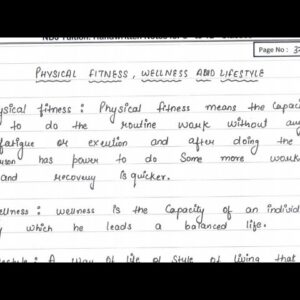 NBS Tuition: Handwritten Notes for
Page No: 3
PHYSICAL FITNESS, WELLNESS AND LIFESTYLE
ysical fitness: Physical fitness means the Capaci
to do the routine work without any
fatigue or exertion and after doing the
rson has power to do Some more work
and recovery is quicker.
ellness: wellness is the Capacity of an individ
y which he leads a balanced life.
estyle: A way of life or Style of living that